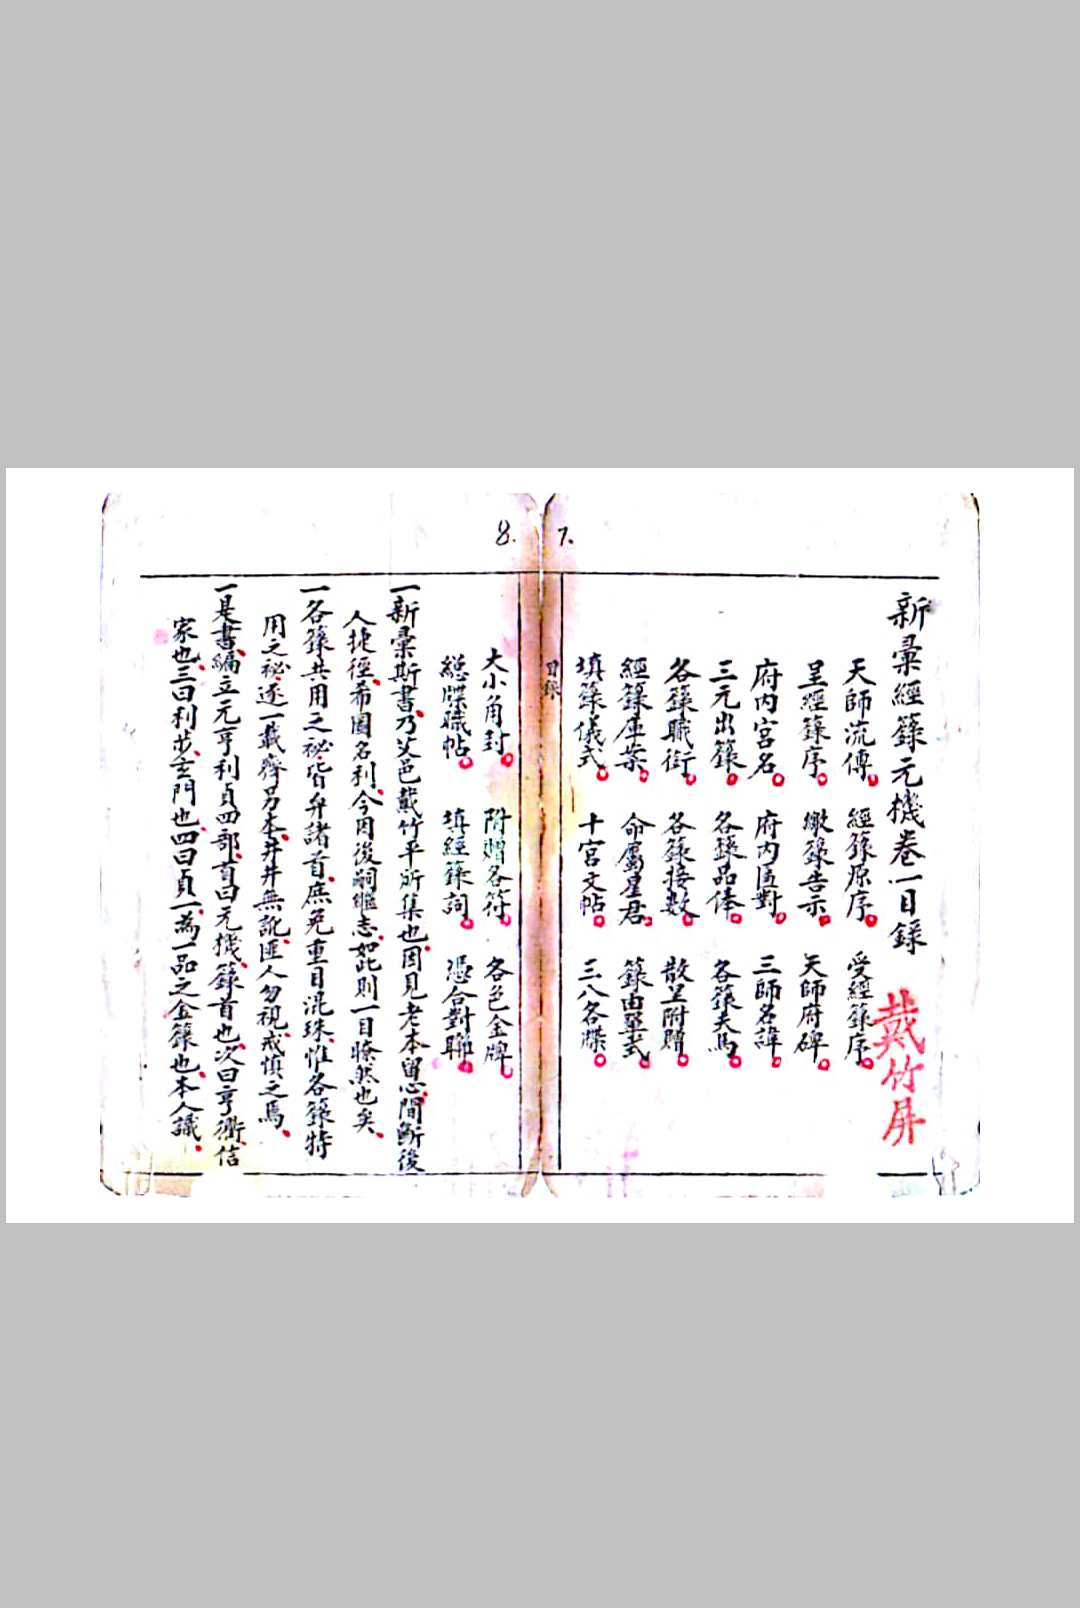 7.
新彙經籙元機卷一目錄
戴竹屏
天師流傳 經籙原序 受經籙序
呈經籙序 繳籙告示 天師府碑
府内宮名 府内匾對 三師名諱
三元出籙 各籙品俸 各籙夫馬
各籙職銜 各籙接數 散呈附贈
經籙庫案 命屬星君 籙由單式
填籙儀式 十宮文帖 三八各牒
目錄
8.
大小角封 附贈各符 各色金牌
總牒職帖 填經籙詞 憑合對聯
一新彙斯書乃艾邑戴竹平所集也因見老本留心間斷後
人捷徑希圖名利今因後嗣繼志如此則一目瞭然也矣
一各籙共用之祕皆弁諸首庶免重目混珠惟各籙特
用之祕逐一載齊另本井井無訛匪人勿視戒慎之焉
一是書編立元亨利貞四部首曰元機籙首也次曰亨衢信
家也三曰利步玄門也四曰貞一為一品之金籙也本人識